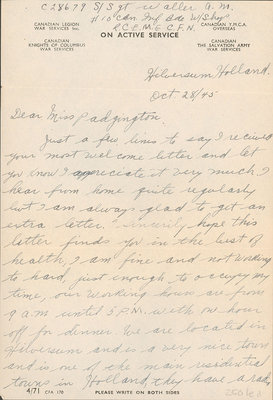 C28679 S/Sgt Waller A. M.
#10 Can Inf Bde W/Shops
R.C.E.M.E. C.F.N.
CANADIAN LEGION
WAR SERVICES Inc.
CANADIAN Y.M.C.A.
OVERSEAS
ON ACTIVE SERVICE
CANADIAN
KNIGHTS OF COLUMBUS
WAR SERVICES
CANADIAN
THE SALVATION ARMY
WAR SERVICES
Hilversum Holland.
Oct 28/45
Dear Miss Padgington:
Just a few lines to say I recieved
your most welcome letter and let
you know I appreciate it very much. I
hear from home quite regularly
but I am always glad to get an
extra letter. Sincerily hope this
letter finds you in the best of
health, I am fine and not working
to hard, just enough to occupy my
time, our working hours are from
9 a.m until 5 P.M. with one hour
off for dinner. We are located in
Hilversum and is a very nice town
and is one of the main residential
towns in Holland, they have a radio
4/71 CFA 170
PLEASE WRITE ON BOTH SIDES